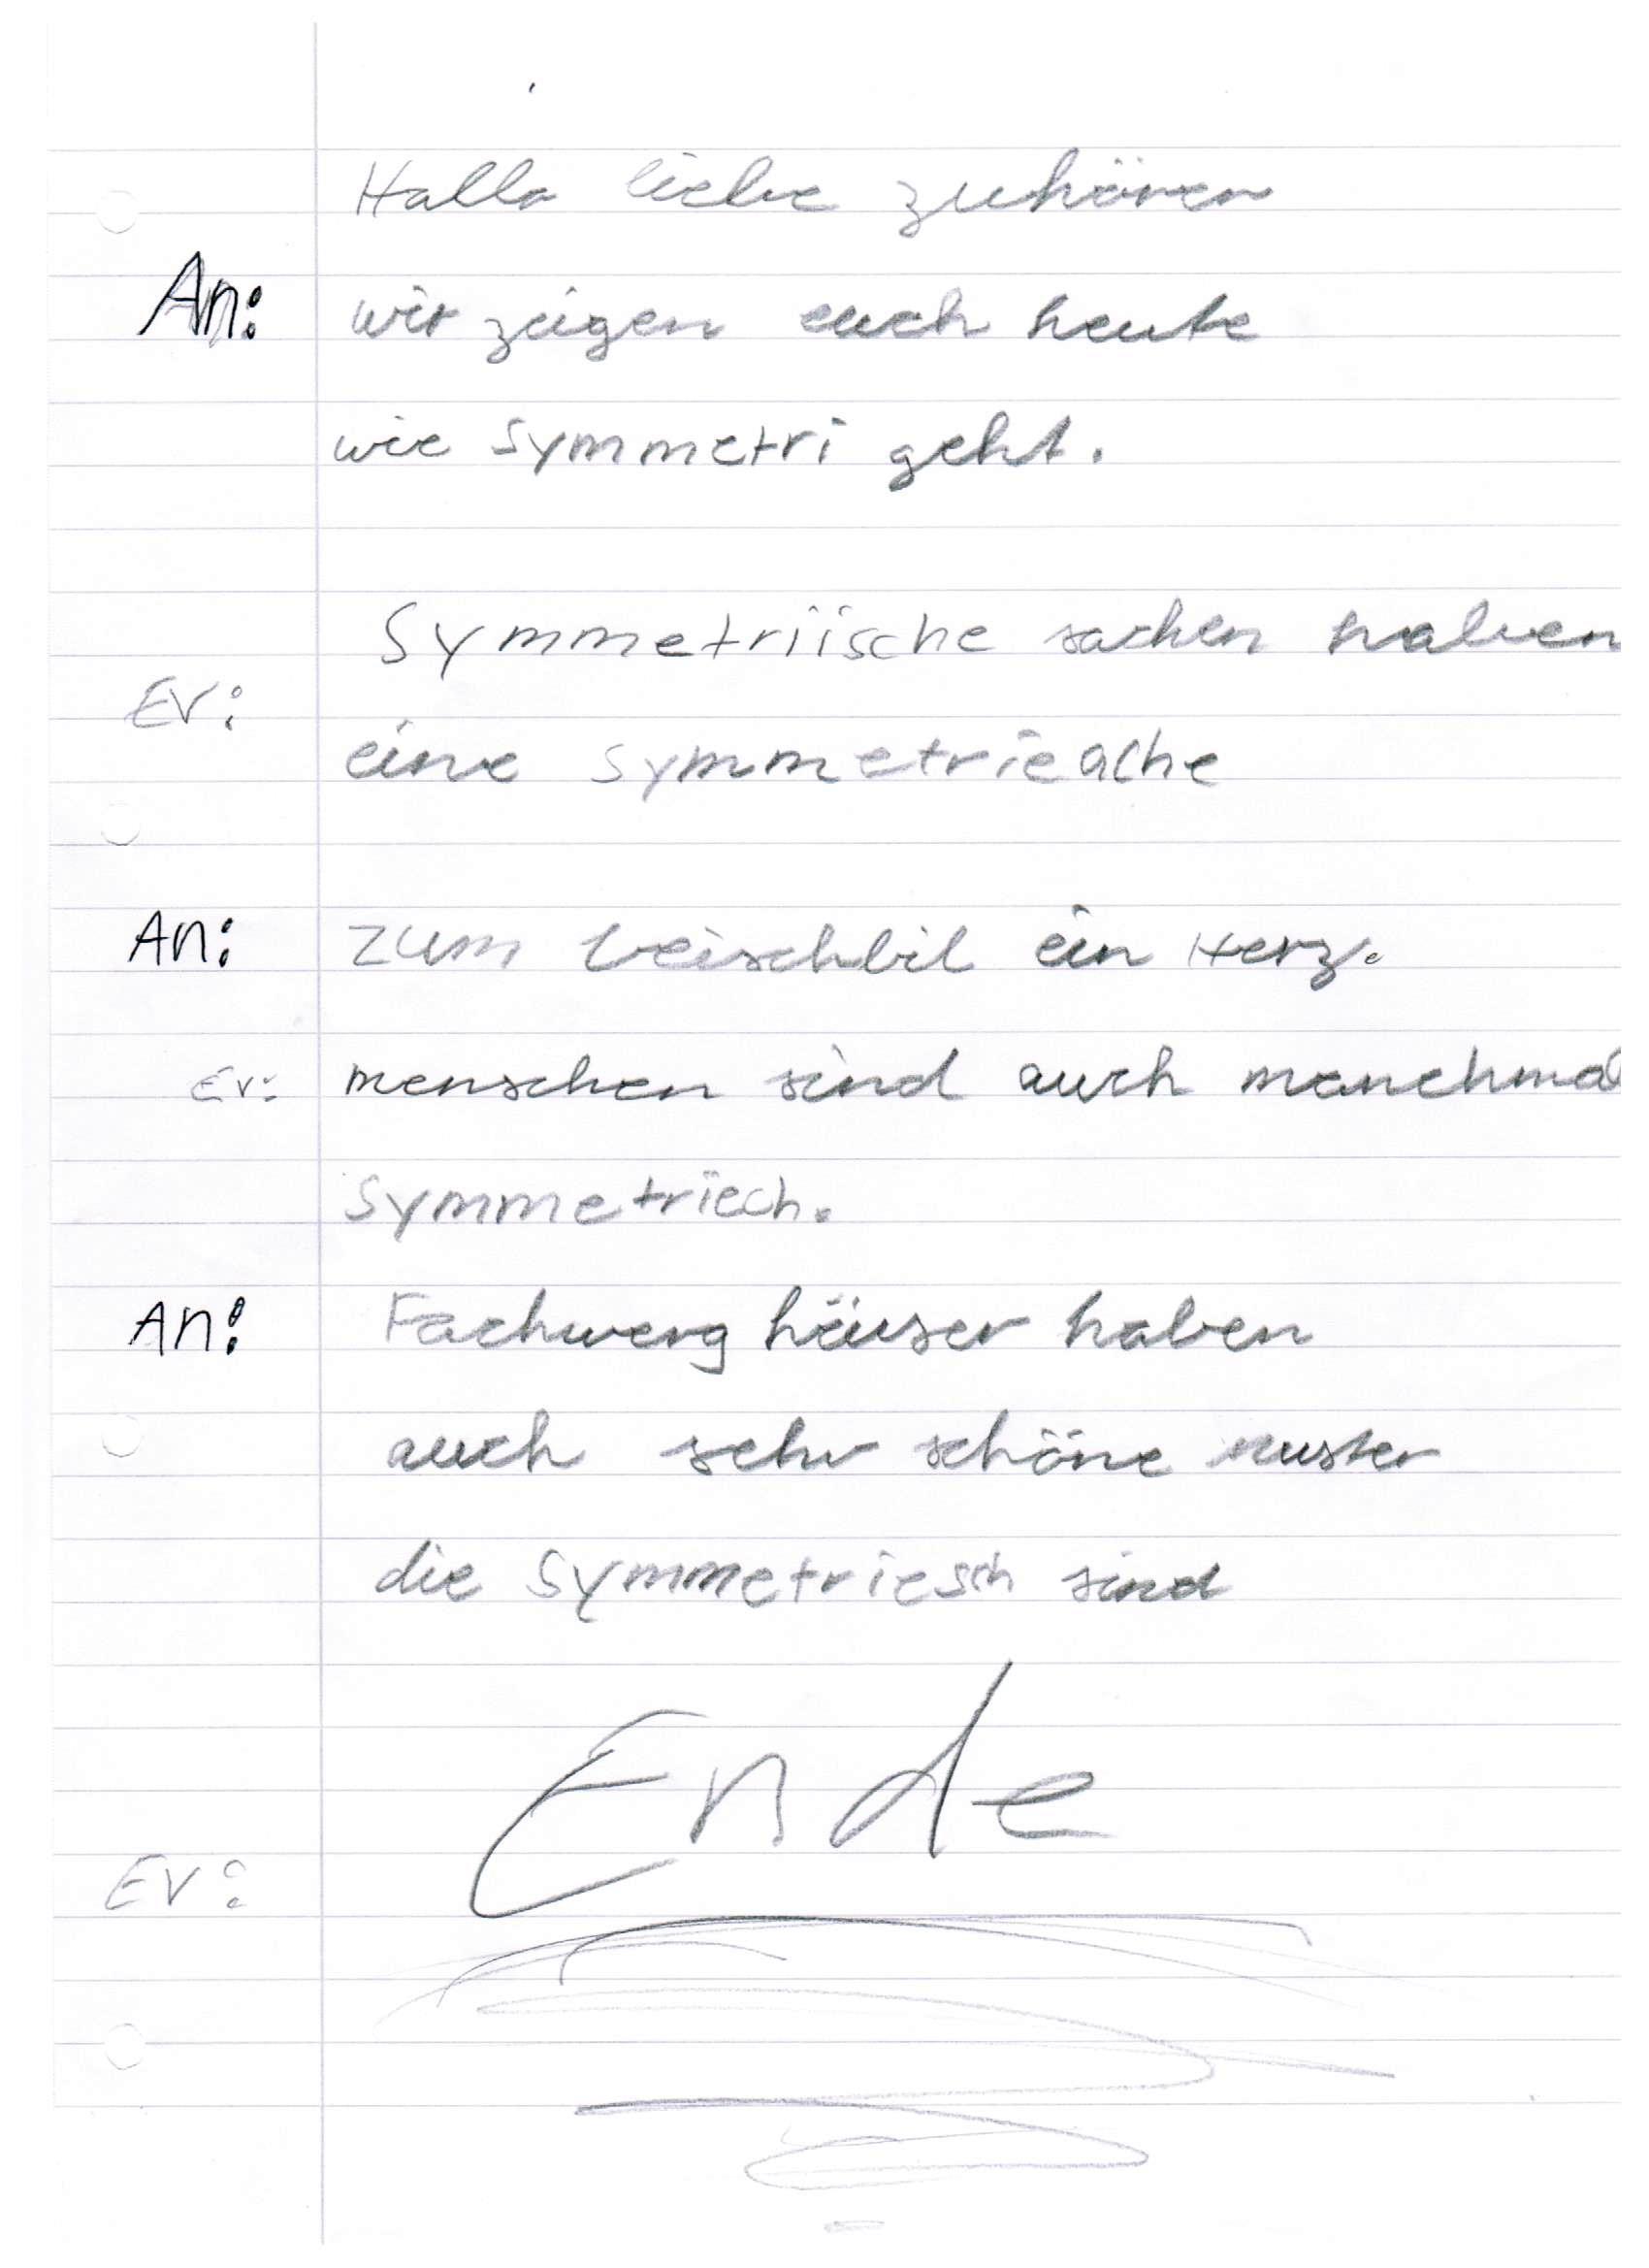 Hallo liebe zuhörer
An: wir zeigen euch heute
wie Symmetri geht.
Symmetriische sachen haben
EV: eine Symmetrieache
An: Zum beischbil ein Herz.
Ev: menschen sind auch manchmal
Symmetriech.
An: Fachwerg häuser haben
auch sehr schöne muster
die Symmetriesch sind
Ende
EV: